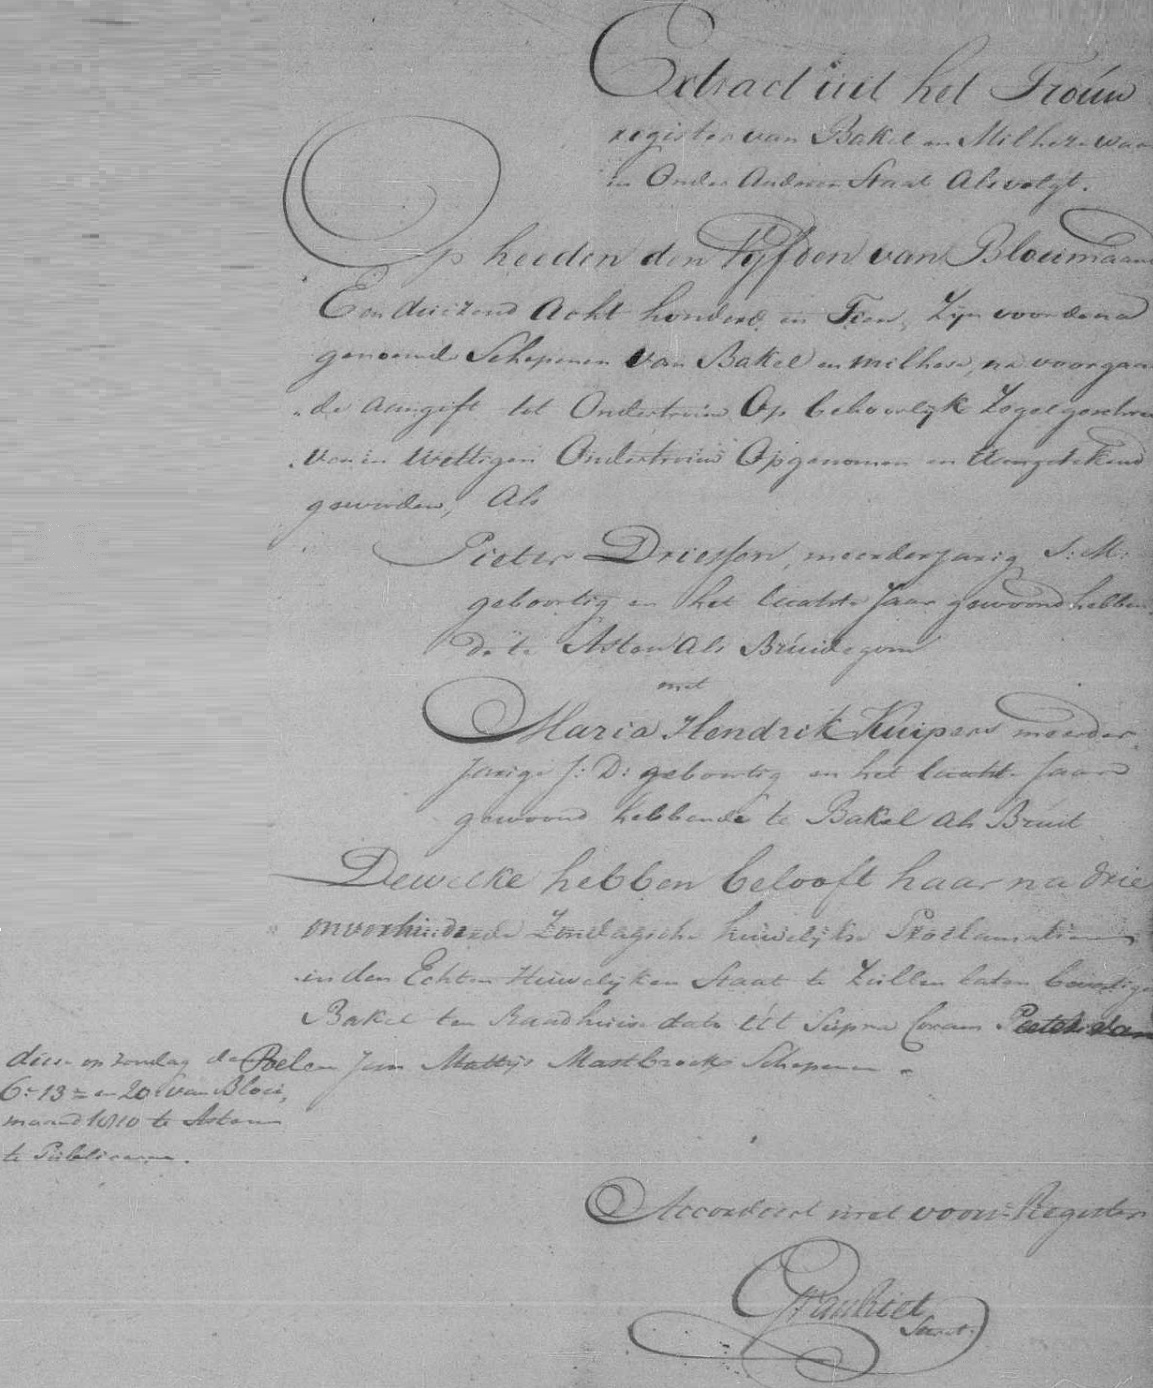 Extract uit het Trouw
register van Bakel en Milheze waar
in Onder Anderen Staat Als volgt.
Op heeden den Vyfden van Bloeimaand
Een duizend Acht honderd en Tien, Zyn voor de na
genoemde Schepenen van Bakel en Milhese, na voorgaan
de Aangift tot Ondertrouw Op behoorlyk Zegel geschree
ven in Wettigen Ondertrouw Opgenomen en Aangetekend
geworden, Als
Pieter Driessen, meerderjarig J: M:
geboortig en het laatste Jaar gewoond hebben
de te Asten Als Bruidegom
met
Maria Hendrik Kuipers meerder
jarige J: D: geboortig en het laatste Jaar
gewoond hebbende te Bakel als Bruid
Dewelke hebben belooft haar na drie
onverhinderde Zondagsche huwelykse Proclamatien
in den Echten Huwelyken Staat te Zullen laten bevestigen
Bakel ten Raadhuise dato Ut Supra Coram Peeter van
de Poel en Jan Mattijs Mastbroek Schepenen.
diese op zondag de
6e 13e en 20e van Bloei,
maand 1810 te Asten
te Publiceeren.
Accordeert met voors. Register
Secret.